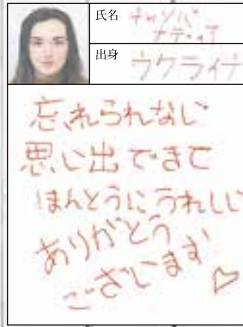 氏名
ナディヤ
出身 ウクライナ
忘れられない
思い出できて
ほんとうにうれしい
ありがとう
ございます